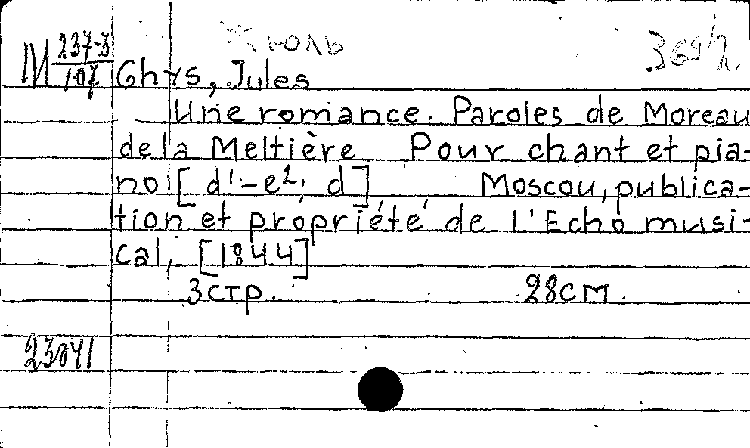 M 237-3/107
Ghys, Jules
Une romance. Paroles de Moreau
de la Meltière Pour chant et pia-
no [d¹-e²; d] Moscou, publica-
tion et propriété de L'Echo musi-
cal, [1844]
3 стр. 28 см.
23041